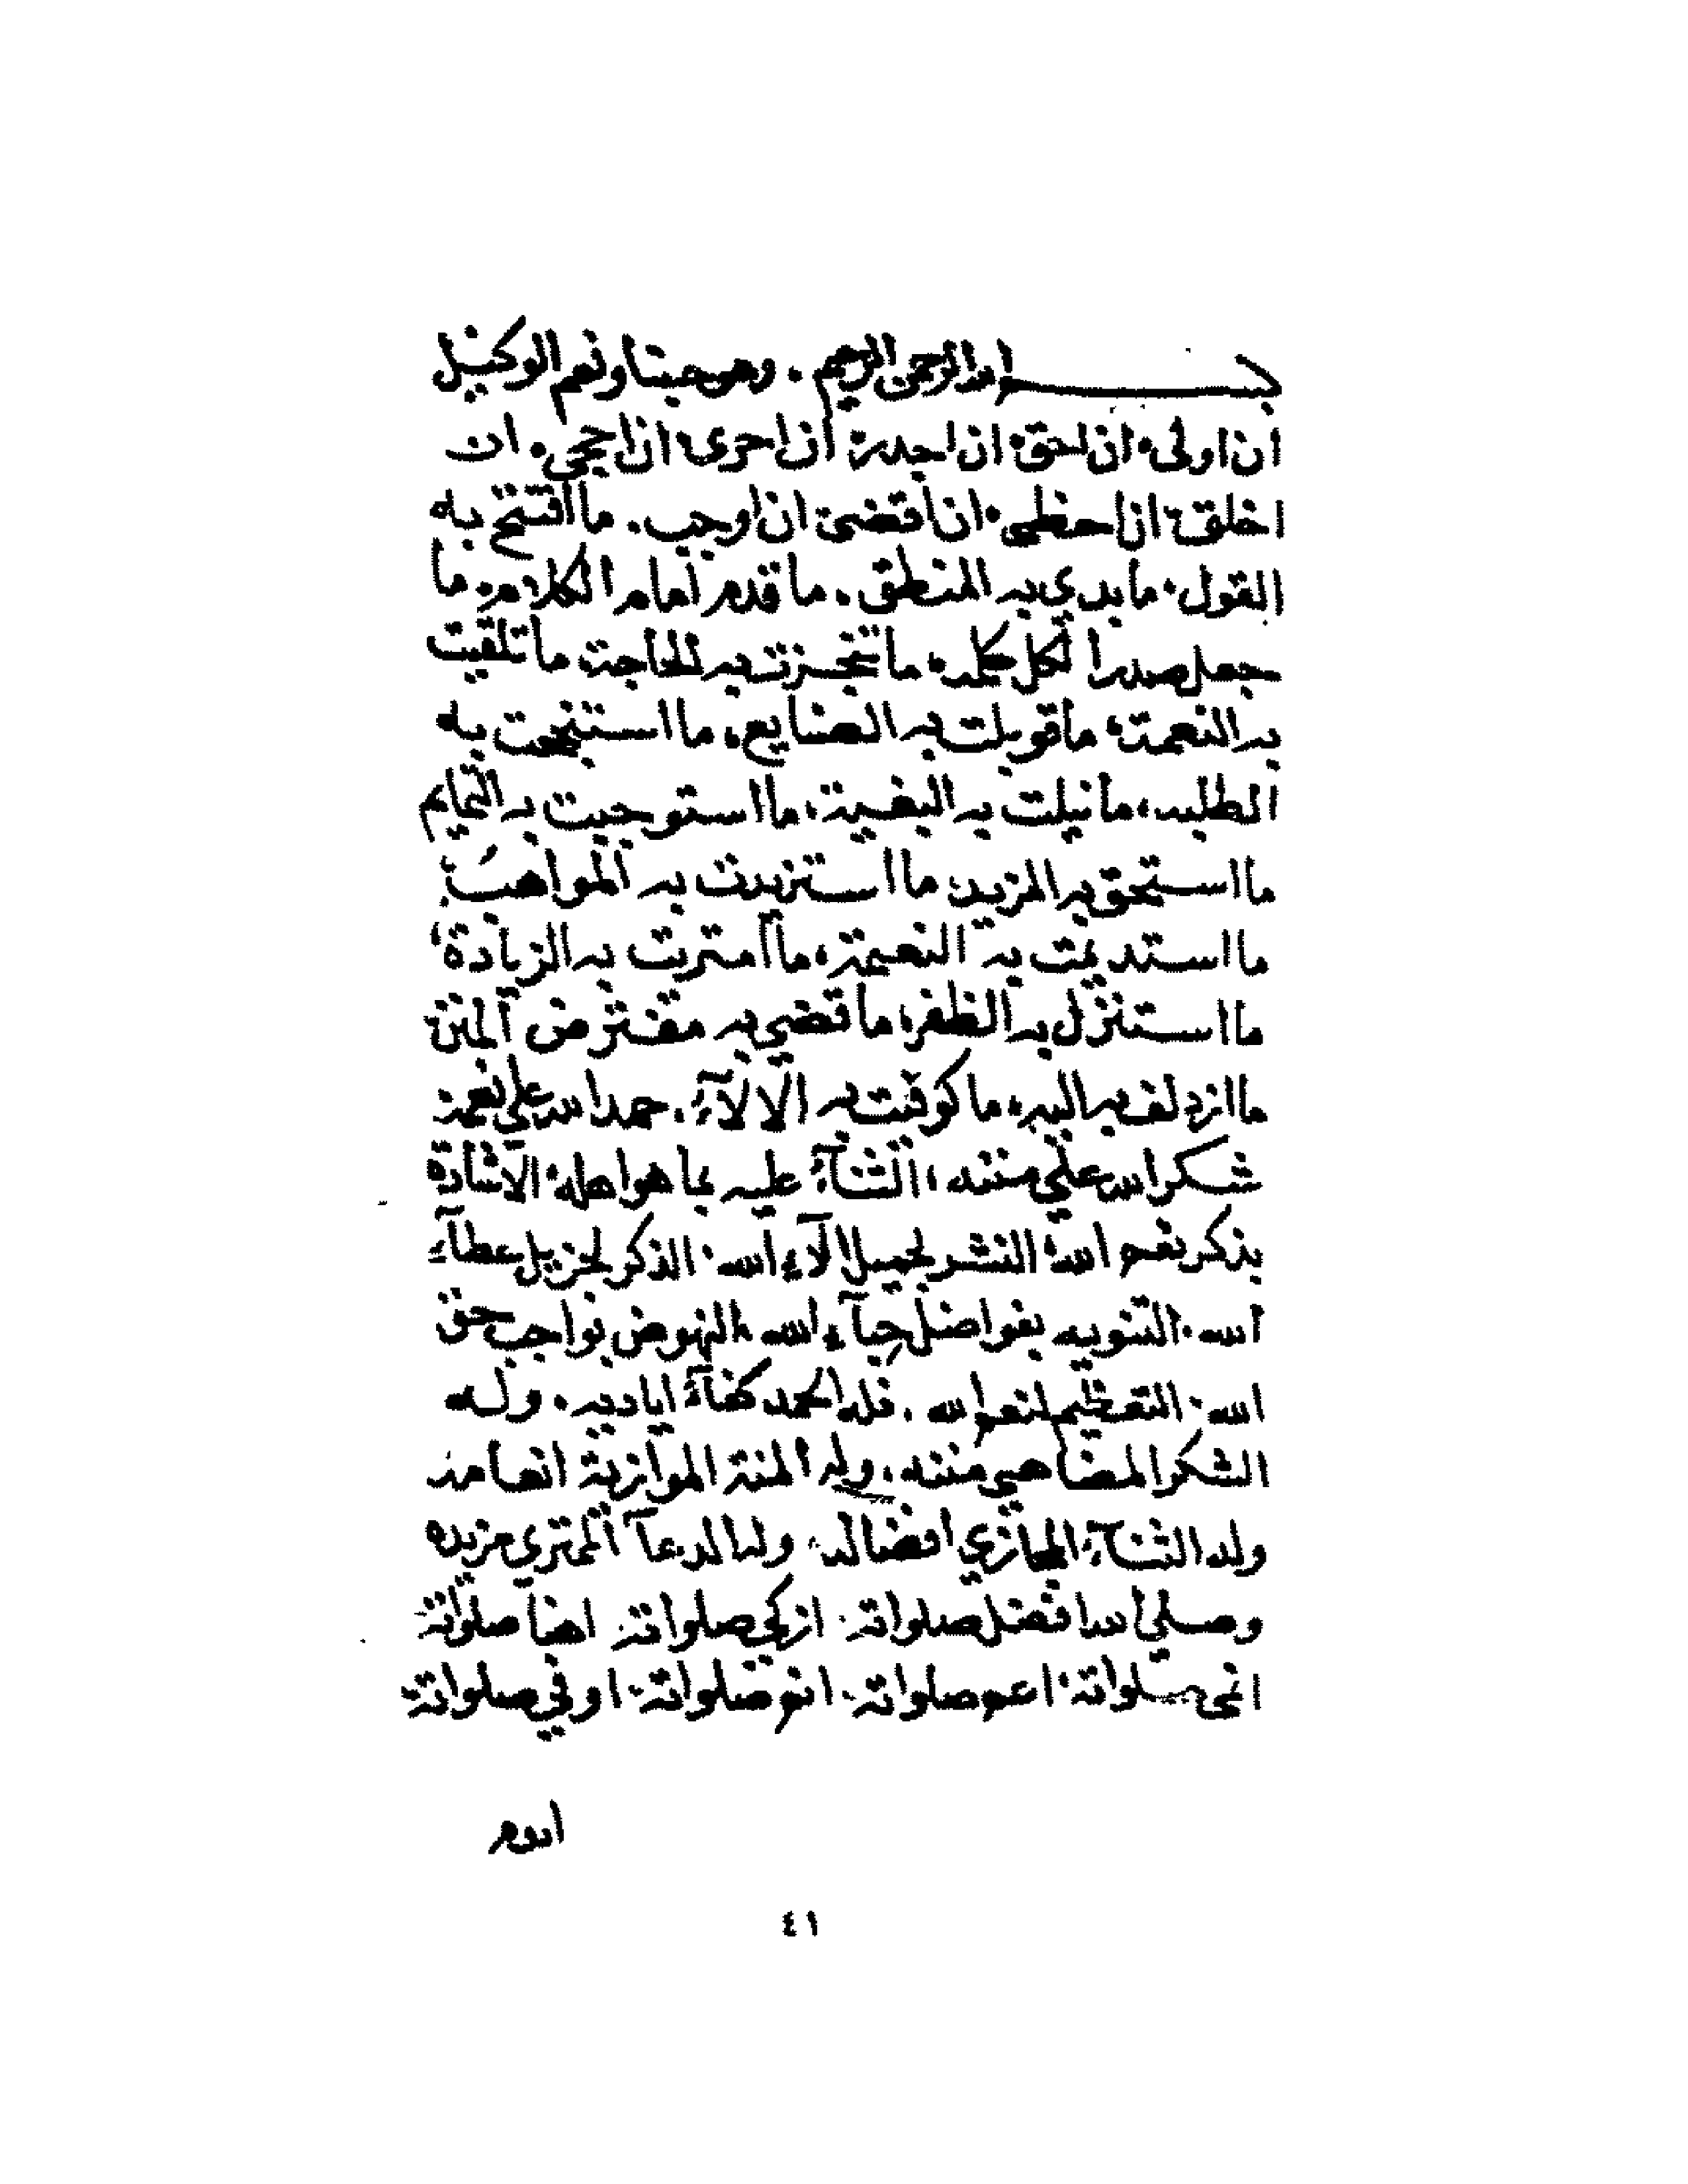 بسم الله الرحمن الرحيم . وهو حسبنا ونعم الوكيل
ان اولى . ان احق . ان اجدر . ان احرى . ان احجى . ان
اخلق . ان احظى . ان اقضى . ان اوجب . ما افتتح به
القول . ما بدي به المنطق . ما قدم امام الكلام . ما
جعل صدرا لكل كلمه ، ما تنجزت به الحاجة ، ما تلقيت
به النعمة ، ما قوبلت به الصنايع ، ما استنجحت به
الطلبه ، ما نيلت به البغية ، ما استوجبت به
ما استحق به المزيد ، ما استزيدت به المواهب ،
ما استديمت به النعيمة ، ما امتريت به الزيادة ،
ما استنزل به الظفر ، ما قضي به مفترض المنن
ما ازدلف به اليه ، ما كوفيت به الالآء . حمد الله على نعمه
شكر الله على مننه ، الثنآء عليه بما هو اهله . الاشادة
بذكر نعم الله . النشر لجميل الآء الله . الذكر لجزيل عطآء
الله . التنويه بفواضل حبآء الله . النهوض بواجب حق
الله . التعظيم لنعم الله . فله الحمد كفآء اياديه . وله
الشكر المضاهي مننه . وله المنة الموازية انعامه
وله الثنآء المجازي افضاله . وله الدعآ الممتري مزيده
وصلى الله افضل صلواته . ازكى صلواته . اهنا صلواته
انمى صلواته . اعم صلواته . اتم صلواته . اوفى صلواته
ادوم
٤١